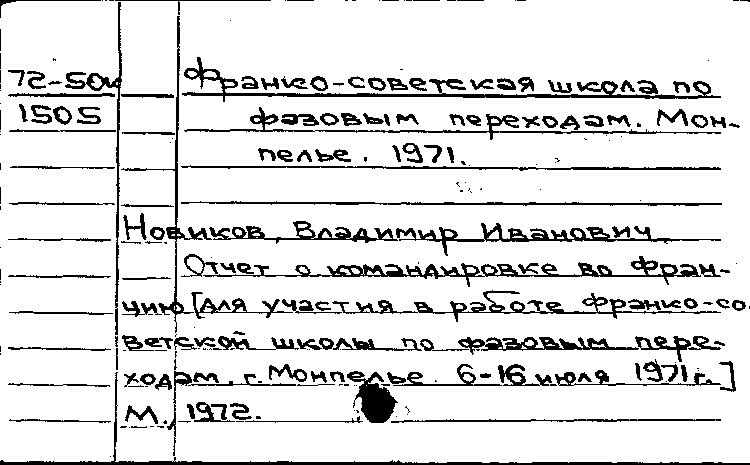 72-50к Франко-советская школа по
1505 фазовым переходам. Мон-
пелье. 1971.
Новиков, Владимир Иванович
Отчет о командировке во Фран-
цию [для участия в работе франко-со
ветской школы по фазовым пере-
ходам, г. Монпелье 6-16 июля 1971 г.]
М., 1972.